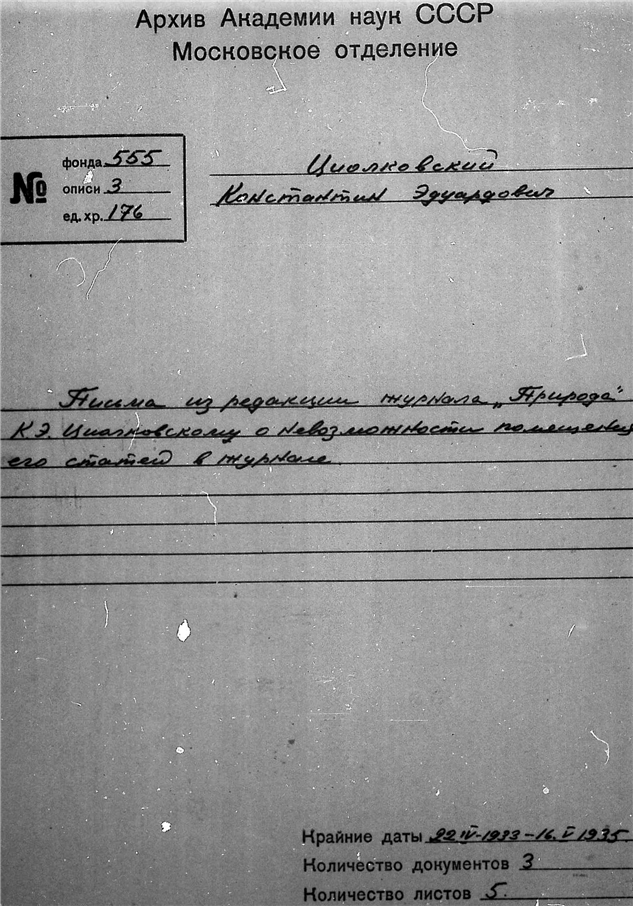 Архив Академии наук СССР
Московское отделение
№
фонда 555
описи 3
ед. хр. 176
Циолковский
Константин Эдуардович
Письма из редакции журнала „Природа"
К.Э. Циолковскому о невозможности помещения
его статей в журнале.
Крайние даты 22 IV-1933-16. V 1935
Количество документов 3
Количество листов 5.